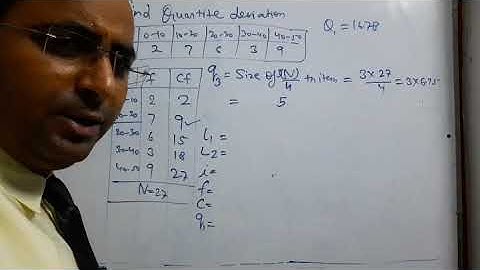 find Quantile deviation
0-10 10-20 20-30 30-40 40-50
2 7 6 3 9
Q₁ = 1678
f Cf
-10 2 2
7 9 ✓
20-30 6 15
30-40 3 18
40-50 9 27
N=27
q₃ = Size of 3(N)/4 th item = 3×27/4 = 3×6.75
= 5
L₁ =
L₂ =
i =
f =
C =
q₁ =